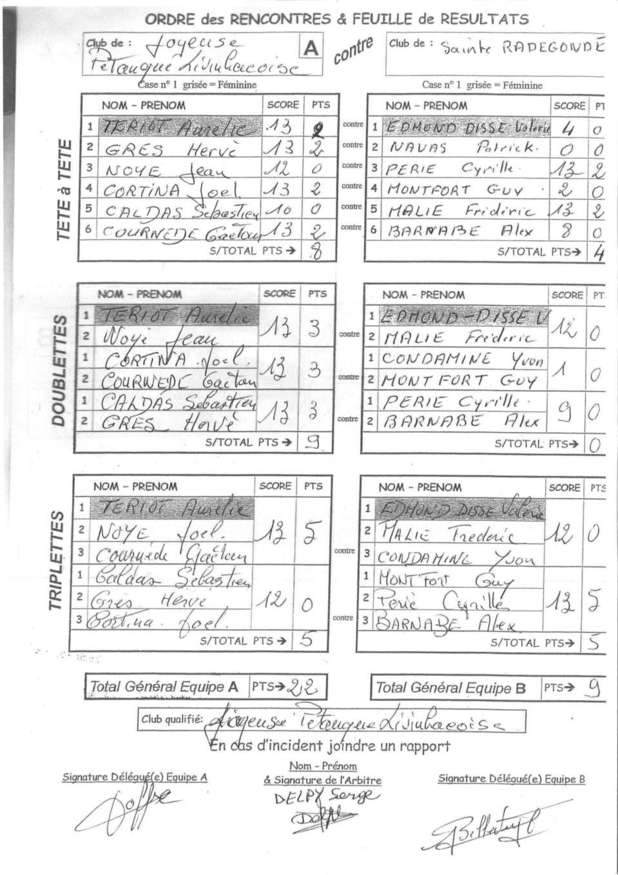 ORDRE des RENCONTRES & FEUILLE de RESULTATS
Club de : Joyeuse Pétanque Livinhacoise A contre Club de : Sainte RADEGONDE
Case n° 1 grisée = Féminine Case n° 1 grisée = Féminine
TETE à TETE
NOM - PRENOM SCORE PTS NOM - PRENOM SCORE PT
1 TERIOT Aurélie 13 2 contre 1 EDMOND DISSE Valérie 4 0
2 GRES Hervé 13 2 contre 2 NAVAS Patrick 0 0
3 NOYE Jean 12 0 contre 3 PERIE Cyrille 13 2
4 CORTINA Joel 13 2 contre 4 MONTFORT GUY 2 0
5 CALDAS Sebastien 10 0 contre 5 MALIE Fridiric 13 2
6 COURNEDE Gaëtan 13 2 contre 6 BARNABE Alex 8 0
S/TOTAL PTS→ 8 S/TOTAL PTS→ 4
DOUBLETTES
NOM - PRENOM SCORE PTS NOM - PRENOM SCORE PT
1 TERIOT Aurélie 13 3 1 EDMOND-DISSE V 12 0
2 Noyé Jean contre 2 MALIE Fréderic
1 CORTINA Joel 13 3 1 CONDAMINE Yvon 1 0
2 COURNEDE Gaëtan 2 MONTFORT GUY
1 CALDAS Sebastien 13 3 1 PERIE Cyrille 9 0
2 GRES Hervé contre 2 BARNABE Alex
S/TOTAL PTS→ 9 S/TOTAL PTS→ 0
TRIPLETTES
NOM - PRENOM SCORE PTS NOM - PRENOM SCORE PTS
1 TERIOT Aurélie 1 EDMOND DISSE Valérie
2 NOYE Joel 13 5 2 MALIE Frederic 12 0
3 Cournede Gaëtan contre 3 CONDAMINE Yvon
1 Caldas Sebastien 1 MONTFort Guy
2 Gres Hervé 12 0 2 Perié Cyrille 13 5
3 Cortina Joel contre 3 BARNABE Alex
S/TOTAL PTS→ 5 S/TOTAL PTS→ 5
Total Général Equipe A PTS→ 22 Total Général Equipe B PTS→ 9
Club qualifié: Joyeuse Pétanque Livinhacoise
En cas d'incident joindre un rapport
Signature Délégué(e) Equipe A Nom - Prénom & Signature de l'Arbitre Signature Délégué(e) Equipe B
DELPY Serge